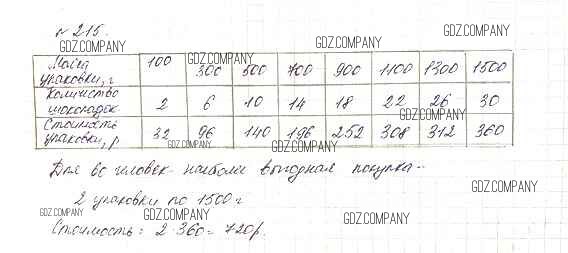 № 215.
GDZ.COMPANY GDZ.COMPANY GDZ.COMPANY
Масса упаковки, г 100 300 500 700 900 1100 1300 1500
GDZ.COMPANY GDZ.COMPANY
Количество шоколадок 2 6 10 14 18 22 26 30
GDZ.COMPANY
Стоимость упаковки, р 32 96 140 196 252 308 312 360
GDZ.COMPANY GDZ.COMPANY
Для 60 человек наиболе выгодная покупка -
GDZ.COMPANY
2 упаковки по 1500 г
GDZ.COMPANY GDZ.COMPANY GDZ.COMPANY
Стоимость: 2·360 = 720 р.